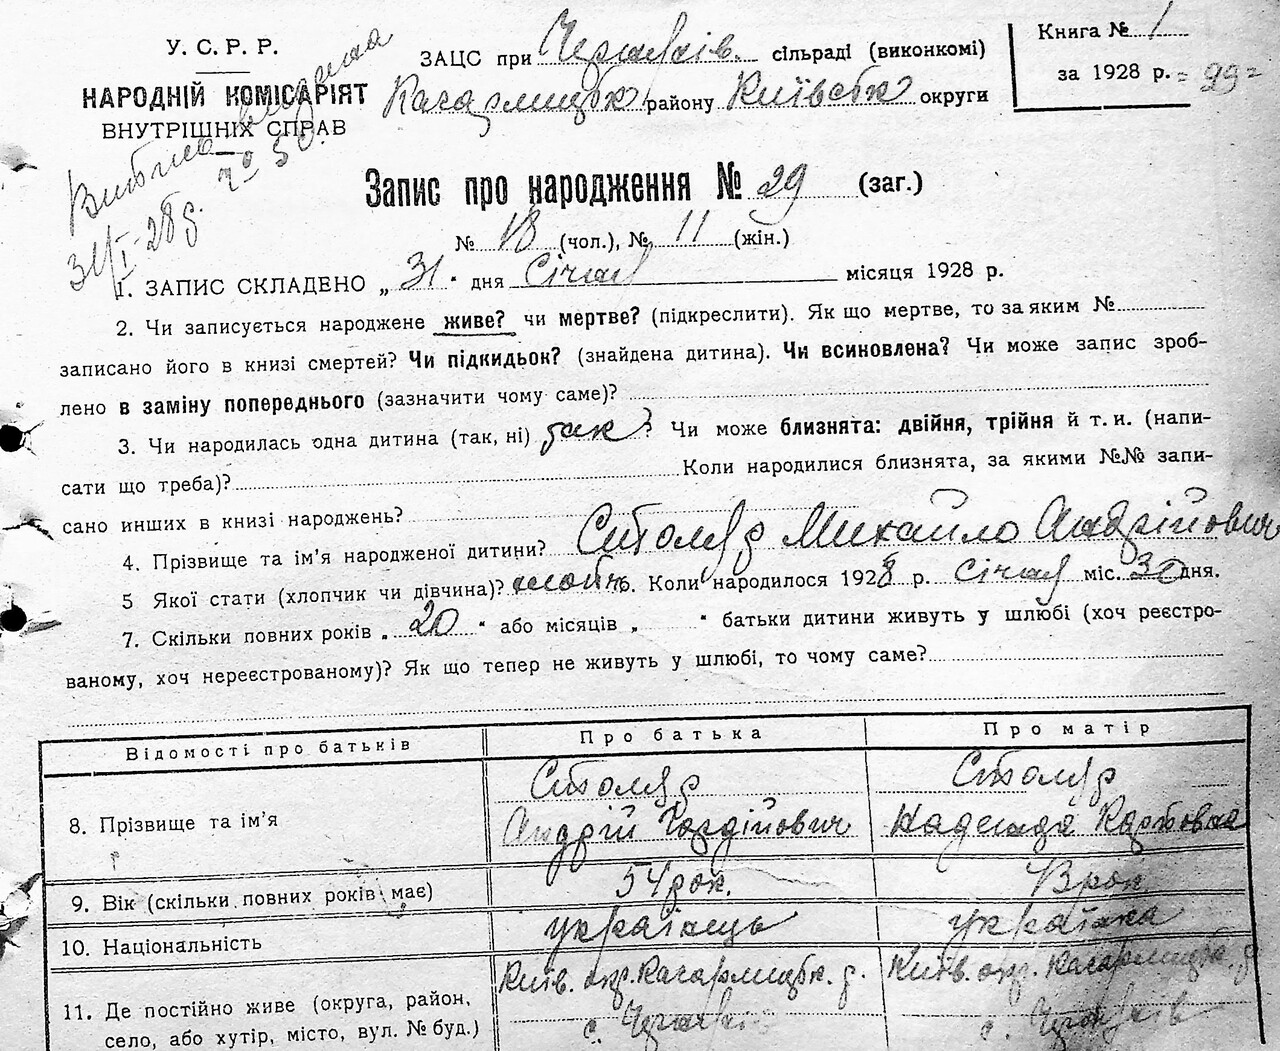 У. С. Р. Р.
НАРОДНІЙ КОМІСАРІЯТ
ВНУТРІШНІХ СПРАВ
ЗАЦС при сільраді (виконкомі)
Кагарлицьк району Київськ округи
Книга № 1
за 1928 р. = 99 =
31/I-28 р.
Запис про народження № 29 (заг.)
№ 18 (чол.), № 11 (жін.)
1. ЗАПИС СКЛАДЕНО „ 31 “ дня Січня місяця 1928 р.
2. Чи записується народжене живе? чи мертве? (підкреслити). Як що мертве, то за яким №
записано його в книзі смертей? Чи підкидьок? (знайдена дитина). Чи всиновлена? Чи може запис зроб-
лено в заміну попереднього (зазначити чому саме)?
3. Чи народилась одна дитина (так, ні) так? Чи може близнята: двійня, трійня й т. и. (напи-
сати що треба)? Коли народилися близнята, за якими №№ запи-
сано инших в книзі народжень?
4. Прізвище та ім’я народженої дитини? Столяр Михайло Андрійович
5 Якої стати (хлопчик чи дівчина)? Коли народилося 1928 р. січня міс. 30 дня.
7. Скільки повних років „ 20 “ або місяців „ “ батьки дитини живуть у шлюбі (хоч реєстро-
ваному, хоч нереєстрованому)? Як що тепер не живуть у шлюбі, то чому саме?
Відомості про батьків Про батька Про матір
8. Прізвище та ім’я Столяр Столяр
Андрій Гордійович Надежда Карповна
9. Вік (скільки повних років має) 54 рок. 43 рок
10. Національність українець українка
11. Де постійно живе (округа, район, Київ. окр. Кагарлицьк. р. Київ. окр. Кагарлицьк. р
село, або хутір, місто, вул. № буд.) с. с.